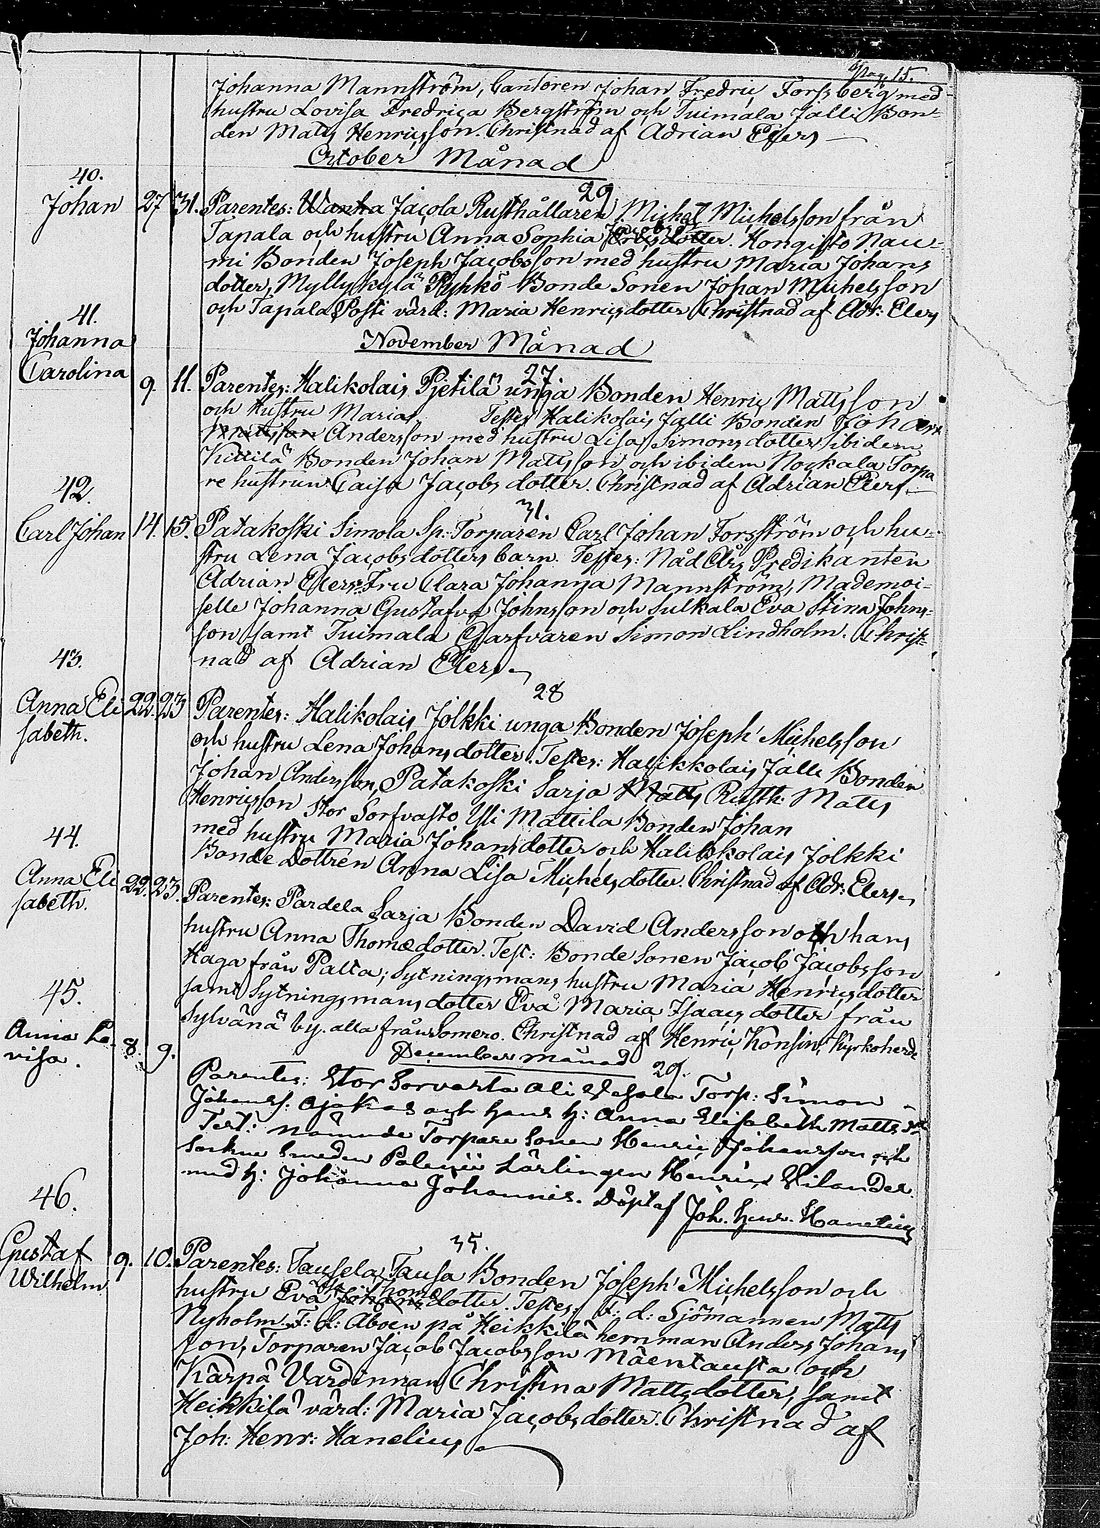 Pag. 15.
Johanna Mannström, Cantoren Johan Fredric Forssberg med
hustru Lovisa Fredrica Bergström och Tuimala Jälli Bon-
den Matts Henricsson. Christnad af Adrian Elers
October Månad
40.
Johan 27 31. Parentes: Jacola Rusthållaren Michel Michelsson från
29
Tapala och hustru Anna Sophia dotter. Hongisto Nau-
mi Bonden Joseph Jacobsson med hustru Maria Johans
dotter, Myllykylä Pyhkö Bonde Sonen Johan Michelsson
och Tapala Posti värd: Maria Henricsdotter Christnad af Adr: Elers
November Månad
41.
Johanna
Carolina 9. 11. Parentes: Halikolais Pjetilä unga Bonden Henric Mattsson
27.
och Hustru Maria Testes Halikolais Jälli Bonden Johan
Andersson med hustru Lisa Simonsdotter ibidem
Kittilä Bonden Johan Mattsson och ibidem Nockala Torpa
re hustrun Caisa Jacobsdotter. Christnad af Adrian Elers.
42.
Carl Johan 14. 15. Patakoski Simola Sp: Torparen Carl Johan Forsström och hu-
31.
stru Lena Jacobsdotters barn. Testes: Nåd Års Predikanten
Adrian Elers Fru Clara Johanna Mannström, Mademoi-
selle Johanna Gustafva Johnsson och Sulkala Eva Stina Johns-
son samt Tuimala Garfvaren Simon Lindholm. Christ-
nad af Adrian Elers.
43.
Anna Eli
sabeth. 22. 23 Parentes: Halikolais Jolkki unga Bonden Joseph Michelsson
28
och hustru Lena Johansdotter. Testes: Halikkolais Jälli Bonden
Johan Andersson, Patakoski Sarja Rusth: Matts
Henricsson Stor Sorfvasto Yli Mattila Bonden Johan
med hustru Maria Johansdotter och Halikkolais Jolkki
Bonde Dottren Anna Lisa Michelsdotter. Christnad af Adr: Elers.
44.
Anna Eli
sabeth. 22. 23. Parentes: Pardela Sarja Bonden David Andersson och hans
hustru Anna Thomædotter. Test: Bonde Sonen Jacob Jacobsson
Haga från Palta; Sytningsmans hustru Maria Henricsdotter
samt Sytningsmans dotter Eva Maria Isaacsdotter från
Sylvänä by. alla från Somero. Christnad af Henric Konsin, Kyrkoherde
45.
Anna Lo-
visa. 8. 9.
December månad
29.
Parentes: Stor Sorvasta Torp: Simon
Johanss: och hans h: Anna Elisabeth Matts dr
Test: nämnde Torpare Sonen Henric Johansson och
Sockne Smeden Lärlingen Henric
med h: Johanna Johannis. Döpt af Joh. Henr. Hanelius
46.
Gustaf
Wilhelm 9. 10. Parentes: Tausela Tausa Bonden Joseph Michelsson och
35.
hustru Eva Thomædotter. Testes: F. d: Sjömannen Matts
Nyholm. F: d: Åboen på Heikkilä hemman Anders Johans
son, Torparen Jacob Jacobsson Mäentausta och
Kärpä Värdinnan Christina Mattsdotter, samt
Heikkilä värd: Maria Jacobsdotter. Christnad af
Joh: Henr: Hanelius.